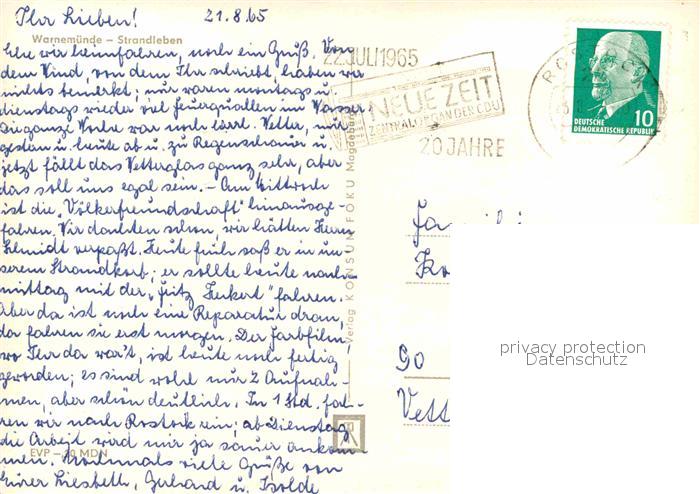 Ihr Lieben! 21.8.65
Warnemünde – Strandleben
Ehe wir heimfahren, noch ein Gruß. Von
dem Wind, von dem Ihr schriebt, haben wir
nichts bemerkt; nur waren montags u.
dienstags wieder viel Feuerquallen im Wasser.
Die ganze Woche war noch Wetter, nur
gestern u. heute ab u. zu Regenschauer u.
jetzt fällt das Wetterglas ganz sehr, aber
das soll uns egal sein. – Am Mittwoch
ist die „Völkerfreundschaft" hinausge-
fahren. Wir dachten schon, wir hätten Herrn
Schmidt verpaßt. Heute früh saß er in un-
serem Strandkorb; er sollte heute nach-
mittag mit der „Fritz Heckert" fahren.
Aber da ist noch eine Reparatur dran,
da fahren sie erst morgen. Der Farbfilm,
wo Ihr da war't, ist heute noch fertig
geworden; es sind wohl nur 2 Aufnah-
men, aber schön deutlich. In 1 Std. fah-
ren wir nach Rostock rein; ab Dienstag
die Arbeit wird mir ja sauer ankom-
men. Nochmals viele Grüße von
Eurer Liesbeth, Gerhard u. Isolde
EVP – 20 MDN
Verlag KONSUM-FOKU Magdeburg
22. JULI 1965
NEUE ZEIT
ZENTRALORGAN DER CDU
20 JAHRE
ROSTOCK
10
DEUTSCHE
DEMOKRATISCHE REPUBLIK
90
privacy protection
Datenschutz